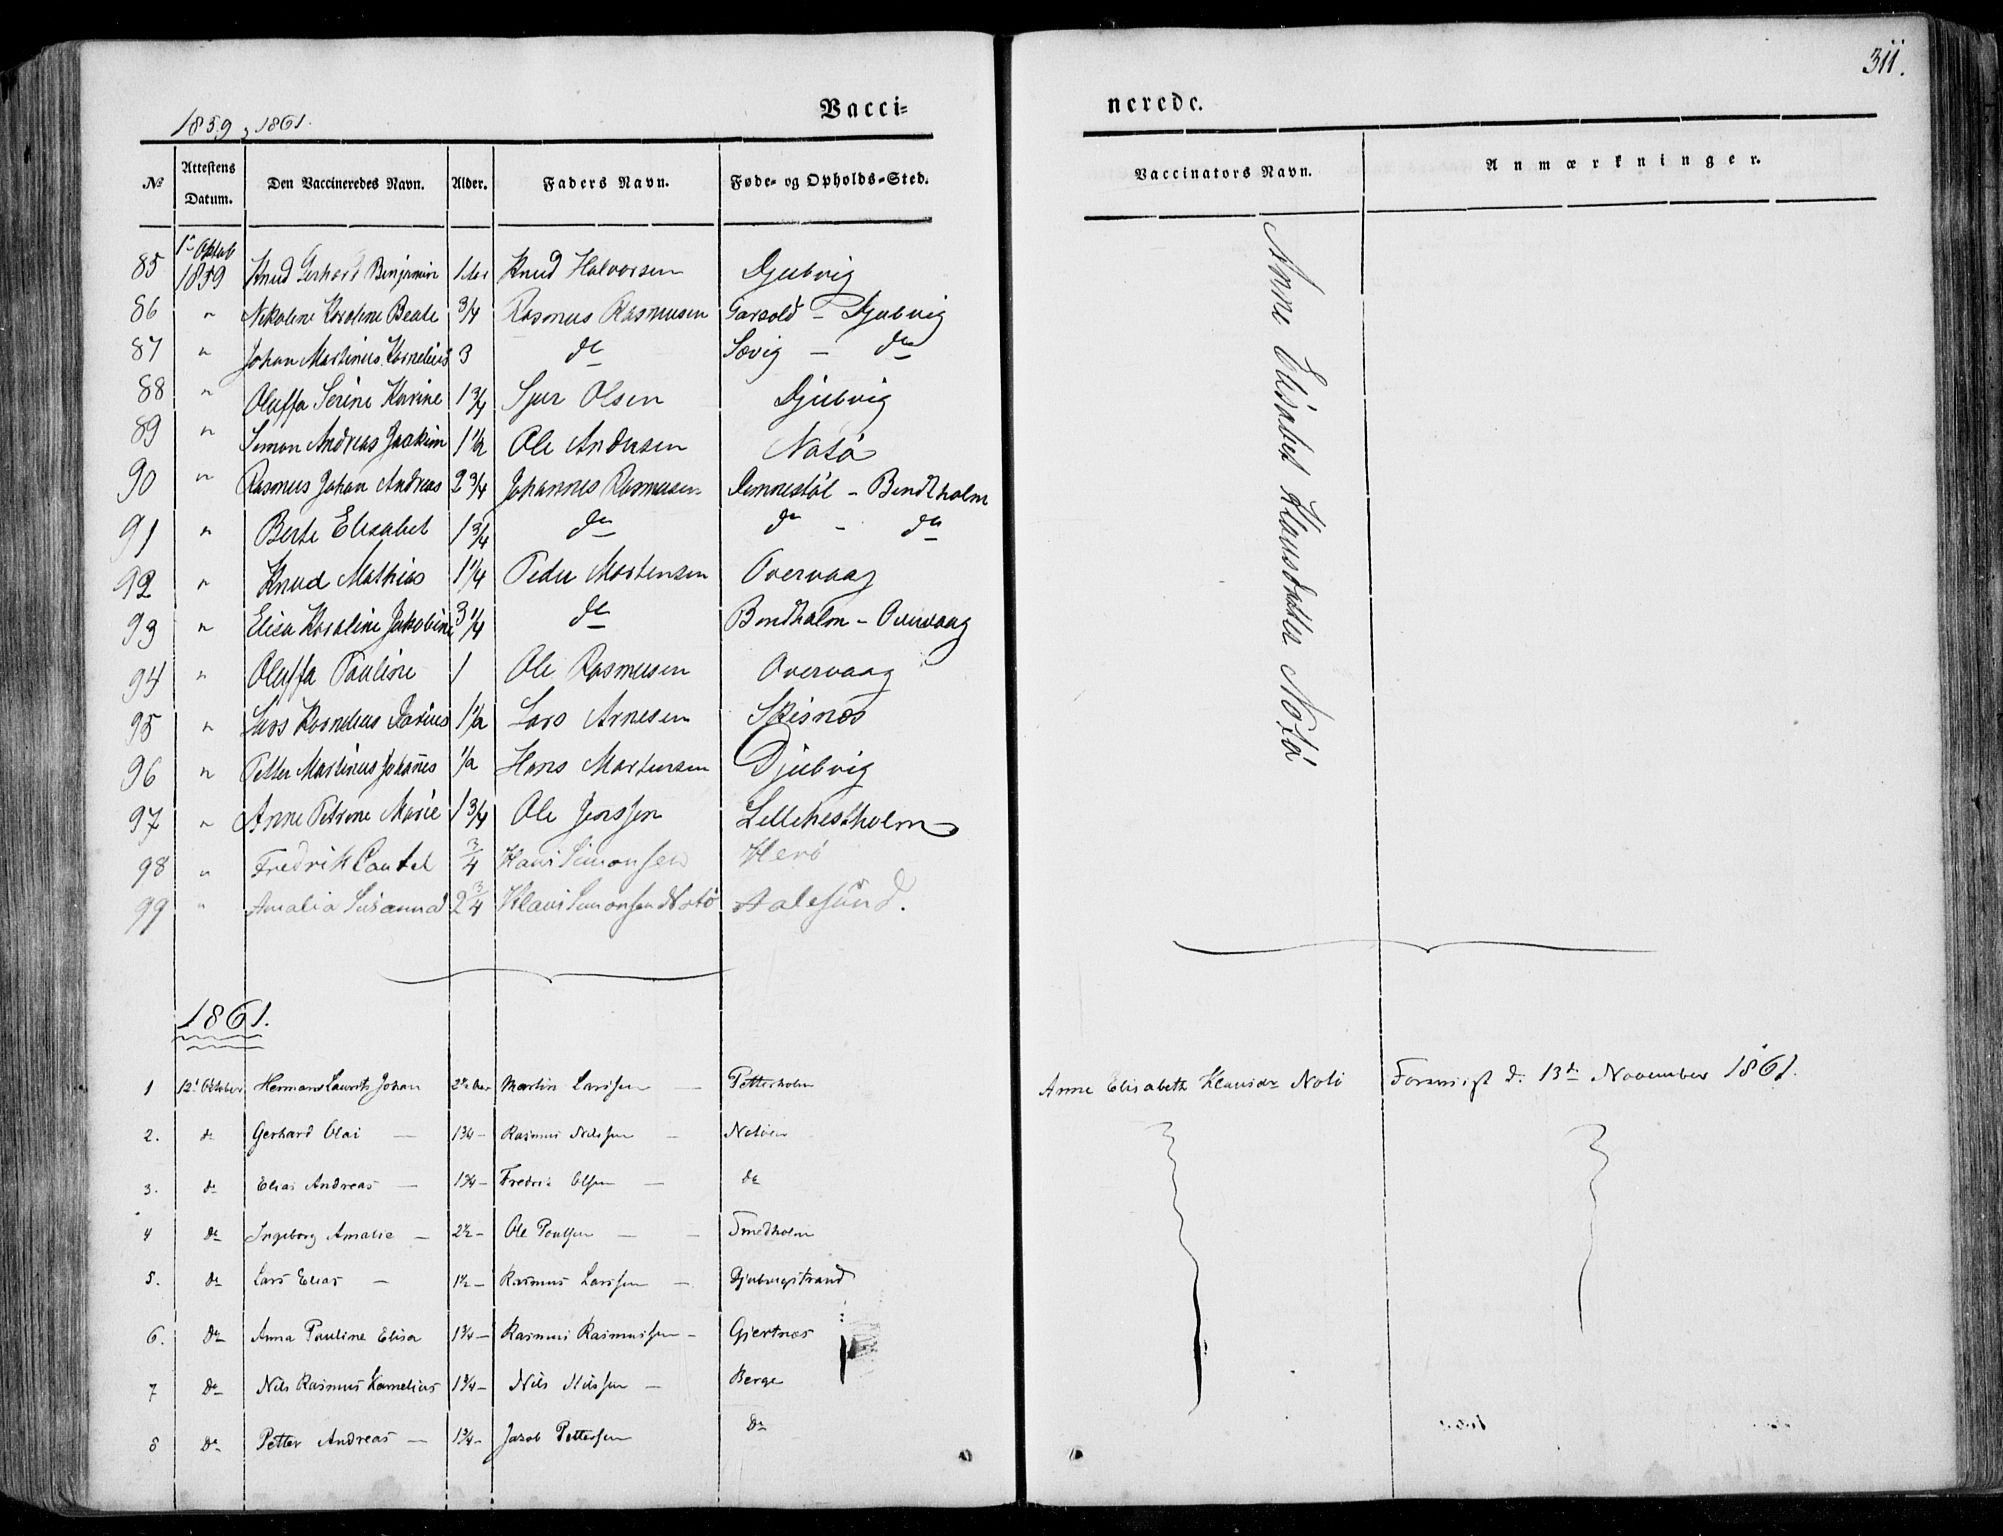 311.
1859, 1861.
Vacci=
nerede.
№ Attestens Datum. Den Vaccineredes Navn. Alder. Faders Navn. Føde- og Opholds-Sted. Vaccinators Navn. Anmærkninger.
85 1ste Octob 1859 Knud Gerhard Benjamin 1 Aar Knud Halvorsen Djubvig
86 " Nikoline Karoline Beate 3/4 Rasmus Rasmusen Garsold - Djubvig
87 " Johan Martinus Kornelius 3 do Sævig - do
88 " Oluffa Serine Karine 1 3/4 Sjur Olsen Djubvig
89 " Simon Andreas Joakim 1 1/2 Ole Andersen Notø
90 " Rasmus Johan Andreas 2 3/4 Johannes Rasmusen Remnestøl - Bendtholm
91 " Berte Elisabet 1 3/4 do do - do
92 " Knud Mathias 1 1/4 Peder Mortensen Overvaag
93 " Elisa Karoline Jakobine 3 1/4 do Bendholm - Overvaag
94 " Oluffa Pauline 1 Ole Rasmusen Overvaag
95 " Lars Kornelius Darius 1 1/2 Lars Arnesen Skisnæs
96 " Petter Martinus Johañes 1/2 Hans Martensen Djubvig
97 " Anne Petrine Marie 1 3/4 Ole Jensen Lillehestholm
98 " Fredrik Cantel 3/4 Hans Simonsen Herø
99 " Amalia Susanna 2 3/4 Klaus Simonsen Notø Aalesund.
Anne Elisabet Klausdatter Notø
1861.
1 12te October Hermans Laurits Johan 2 1/2 Aar Martin Larssen - Petterholm Anne Elisabeth Klausdr Notø Foreviist d. 13de November 1861.
2. do Gerhard Olai - 1 3/4 - Rasmus Nilssen - Notøen
3. do Elias Andreas - 1 3/4 - Fredrik Olsen - do
4 do Ingeborg Amalie - 2 1/2 - Ole Poulsen - - Smedholm
5. do Lars Elias - 1 1/2 - Rasmus Larssen - Djubvigstrand
6. do Anna Pauline Elisa 1 3/4 - Rasmus Rasmussen - Gjertnæs
7 do Nils Rasmus Kornelius 1 3/4 - Nils Nilssen - Berge
8 do Petter Andreas - 1 3/4 - Jacob Pettersen do